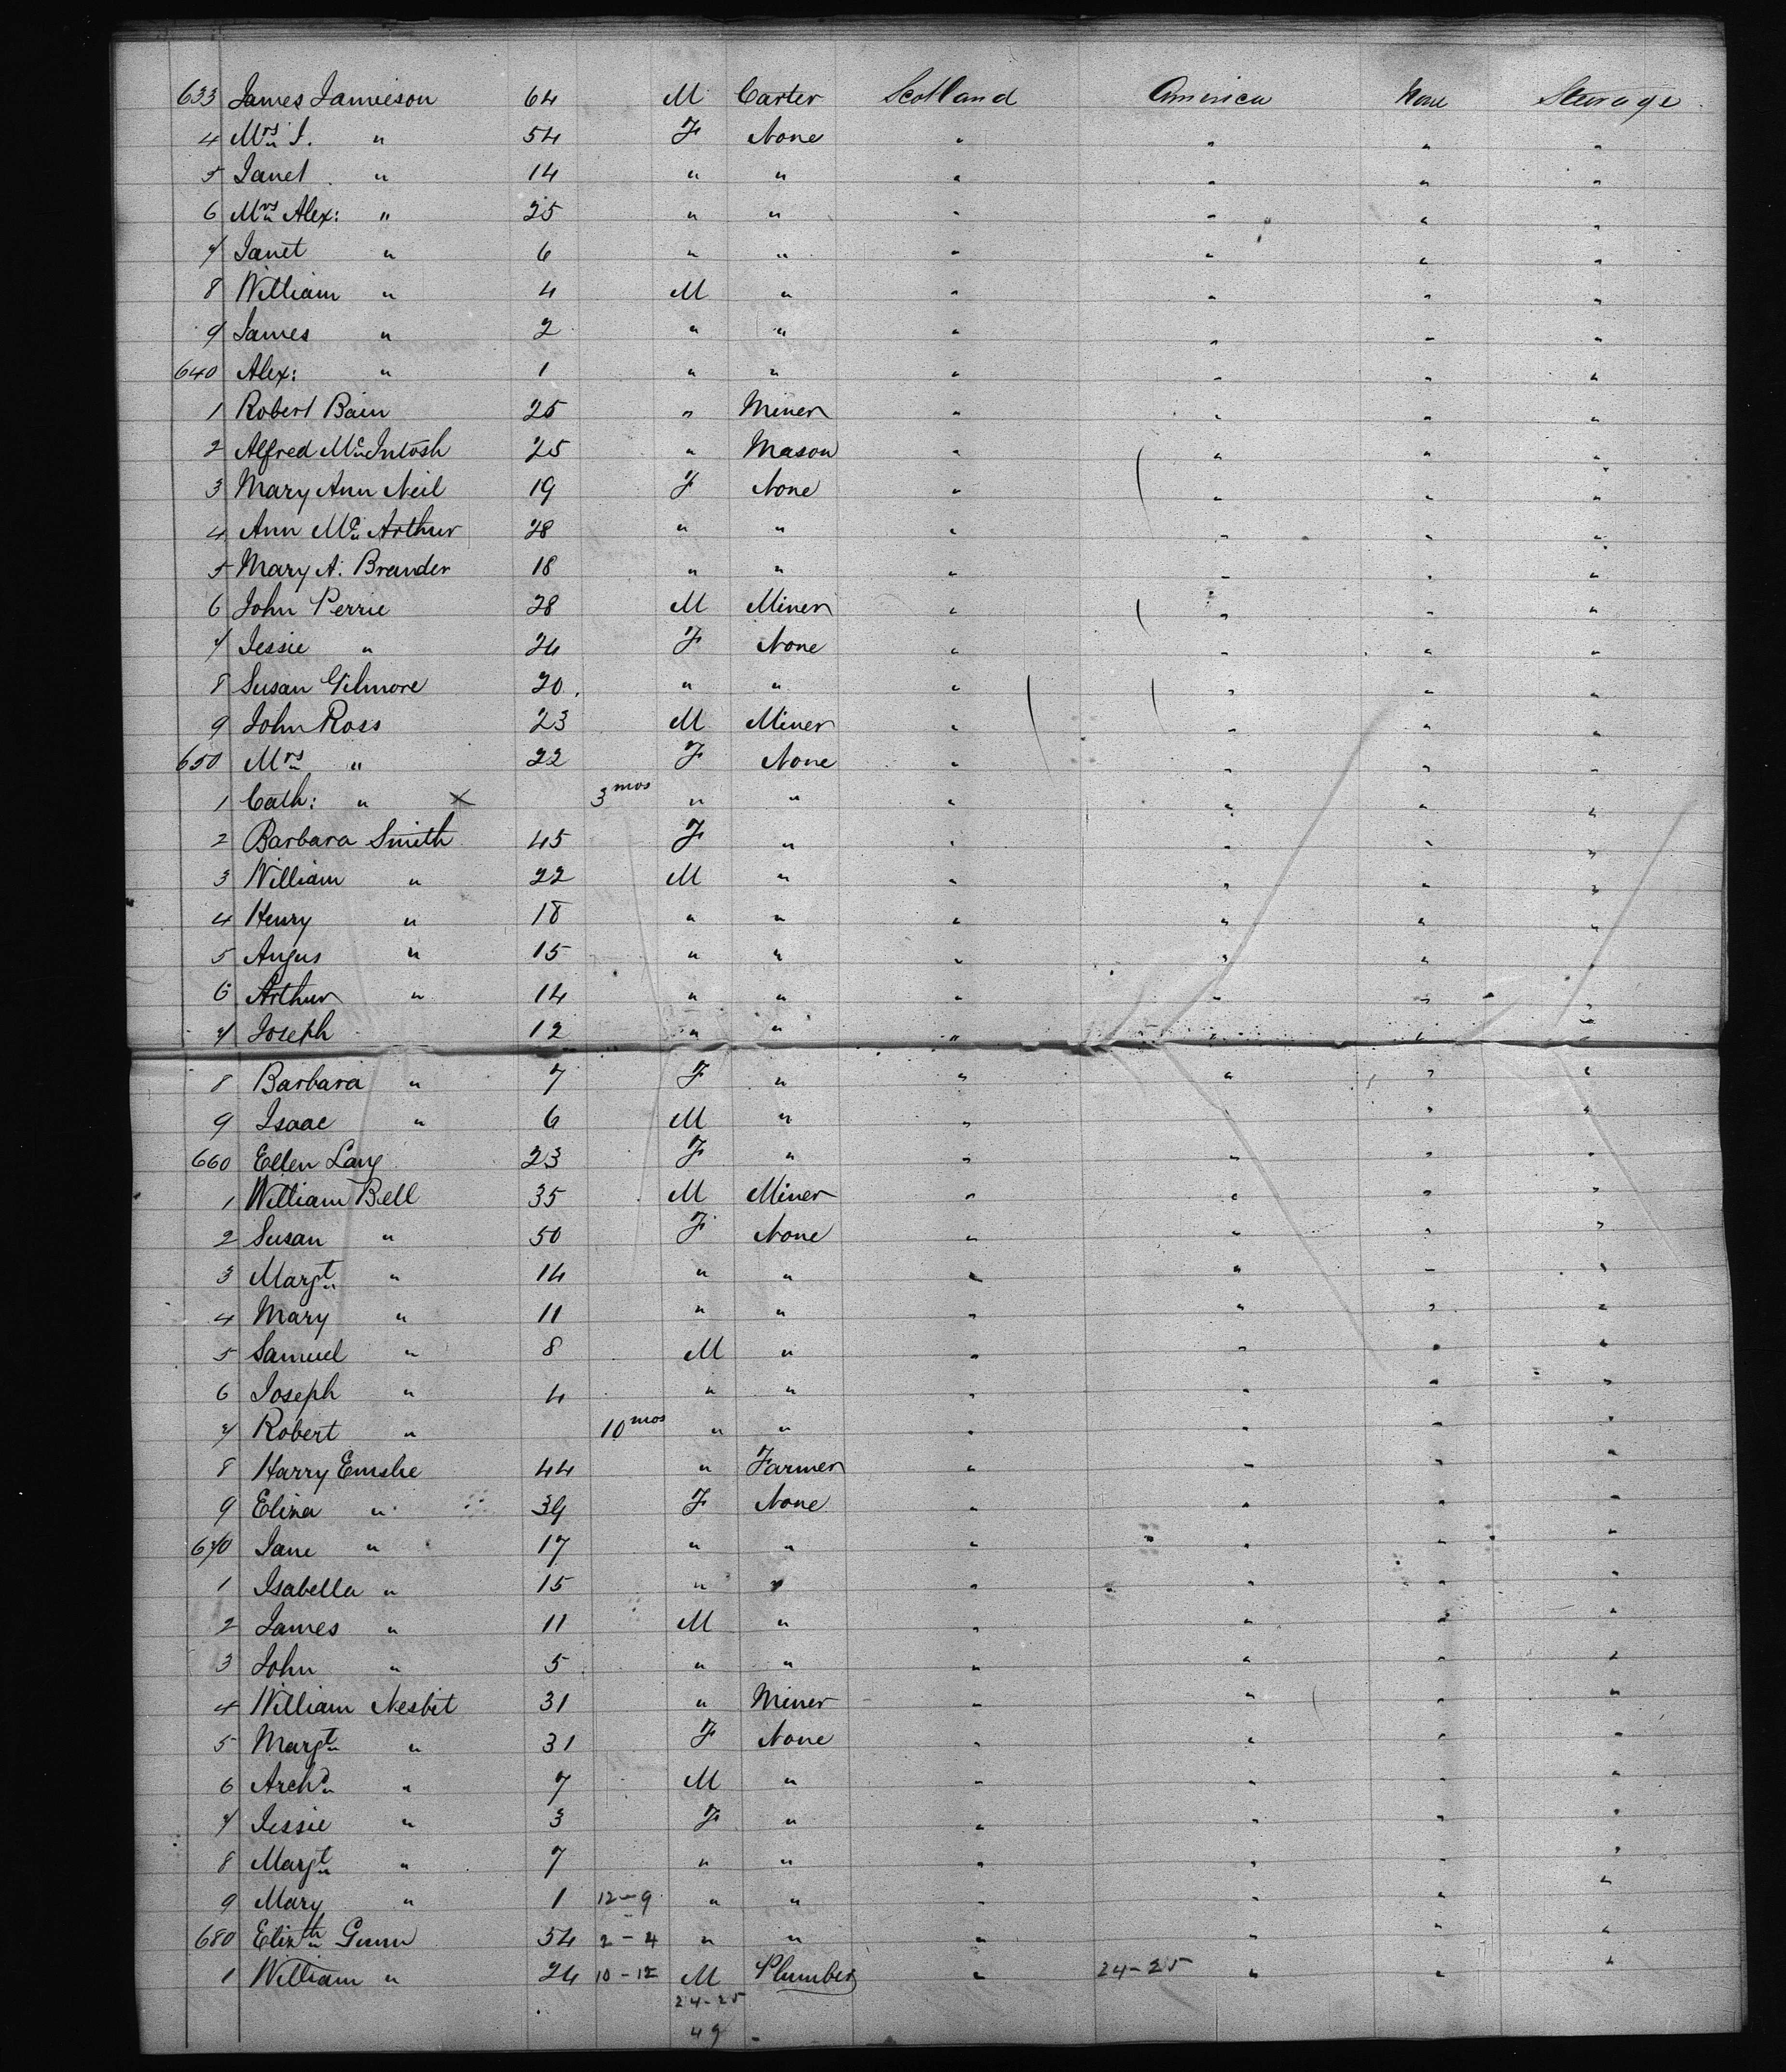 633 James Jamieson 64 M Carter Scotland America None Steerage
4 Mrs J. " 54 F None " " " "
5 Janet " 14 " " " " " "
6 Mrs Alex: " 25 " " " " " "
7 Janet " 6 " " " " " "
8 William " 4 M " " " " "
9 James " 2 " " " " " "
640 Alex: " 1 " " " " " "
1 Robert Bain 25 " Miner " " " "
2 Alfred McIntosh 25 " Mason " " " "
3 Mary Ann Neil 19 F None " " " "
4 Ann Mc Arthur 28 " " " " " "
5 Mary A. Brander 18 " " " " " "
6 John Perrie 28 M Miner " " " "
7 Jessie " 24 F None " " " "
8 Susan Gilmore 20 " " " " " "
9 John Ross 23 M Miner " " " "
650 Mrs " 22 F None " " " "
1 Cath: " X 3 mos " " " " " "
2 Barbara Smith 45 F " " " " "
3 William " 22 M " " " " "
4 Henry " 18 " " " " " "
5 Angus " 15 " " " " " "
6 Arthur " 14 " " " " " "
7 Joseph 12 " " " " " "
8 Barbara " 7 F " " " " "
9 Isaac " 6 M " " " "
660 Ellen Lang 23 F " " " " "
1 William Bell 35 M Miner " " " "
2 Susan " 50 F None " " " "
3 Margt " 14 " " " " " "
4 Mary " 11 " " " " " "
5 Samuel " 8 M " " " " "
6 Joseph " 4 " " " " " "
7 Robert " 10 mos " " " " " "
8 Harry Emslie 44 " Farmer " " " "
9 Eliza " 39 F None " " " "
670 Jane " 17 " " " " " "
1 Isabella " 15 " " " " " "
2 James " 11 M " " " " "
3 John " 5 " " " " " "
4 William Nesbit 31 " Miner " " " "
5 Margt " 31 F None " " " "
6 Archd " 7 M " " " " "
7 Jessie " 3 F " " " " "
8 Margt " 7 " " " " " "
9 Mary " 1 12-9 " " " " " "
680 Elizth Gunn 54 2-4 " " " " " "
1 William " 24 10-12 M Plumber " 24-25 " " "
24-25
49